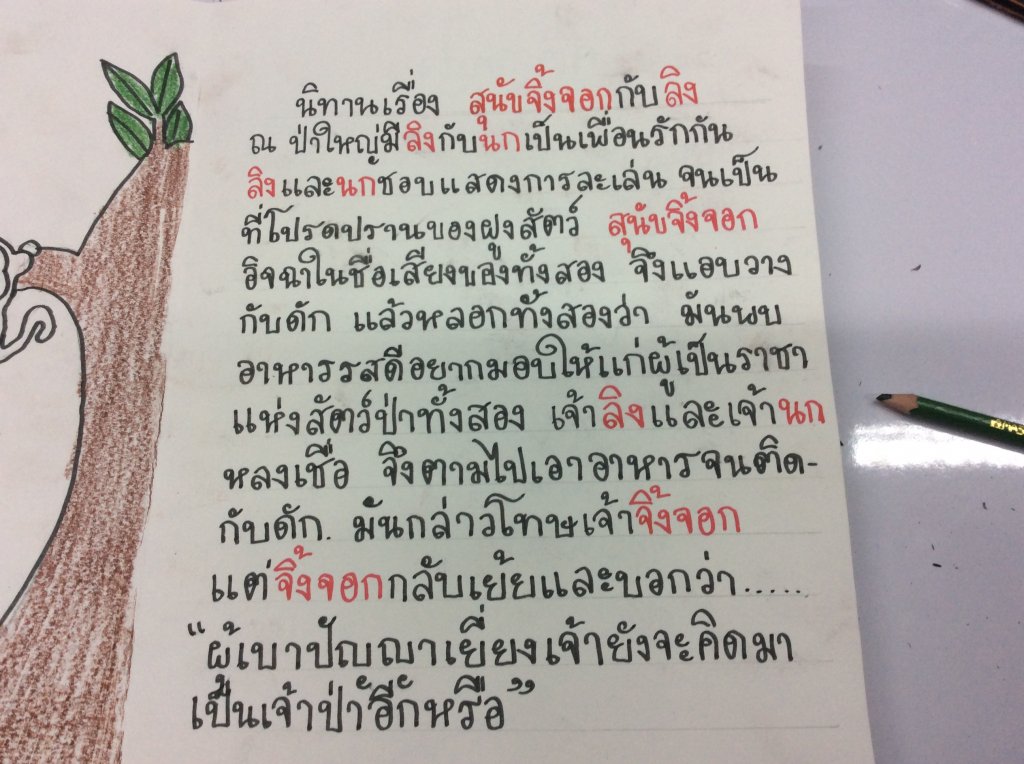 นิทานเรื่อง สุนัขจิ้งจอกกับลิง
ณ ป่าใหญ่มีลิงกับนกเป็นเพื่อนรักกัน
ลิงและนกชอบแสดงการละเล่น จนเป็น
ที่โปรดปรานของฝูงสัตว์ สุนัขจิ้งจอก
อิจฉาในชื่อเสียงของทั้งสอง จึงแอบวาง
กับดัก แล้วหลอกทั้งสองว่า มันพบ
อาหารรสดีอยากมอบให้แก่ผู้เป็นราชา
แห่งสัตว์ป่าทั้งสอง เจ้าลิงและเจ้านก
หลงเชื่อ จึงตามไปเอาอาหารจนติด-
กับดัก. มันกล่าวโทษเจ้าจิ้งจอก
แต่จิ้งจอกกลับเย้ยและบอกว่า.....
"ผู้เบาปัญญาเยี่ยงเจ้ายังจะคิดมา
เป็นเจ้าป่าอีกหรือ"